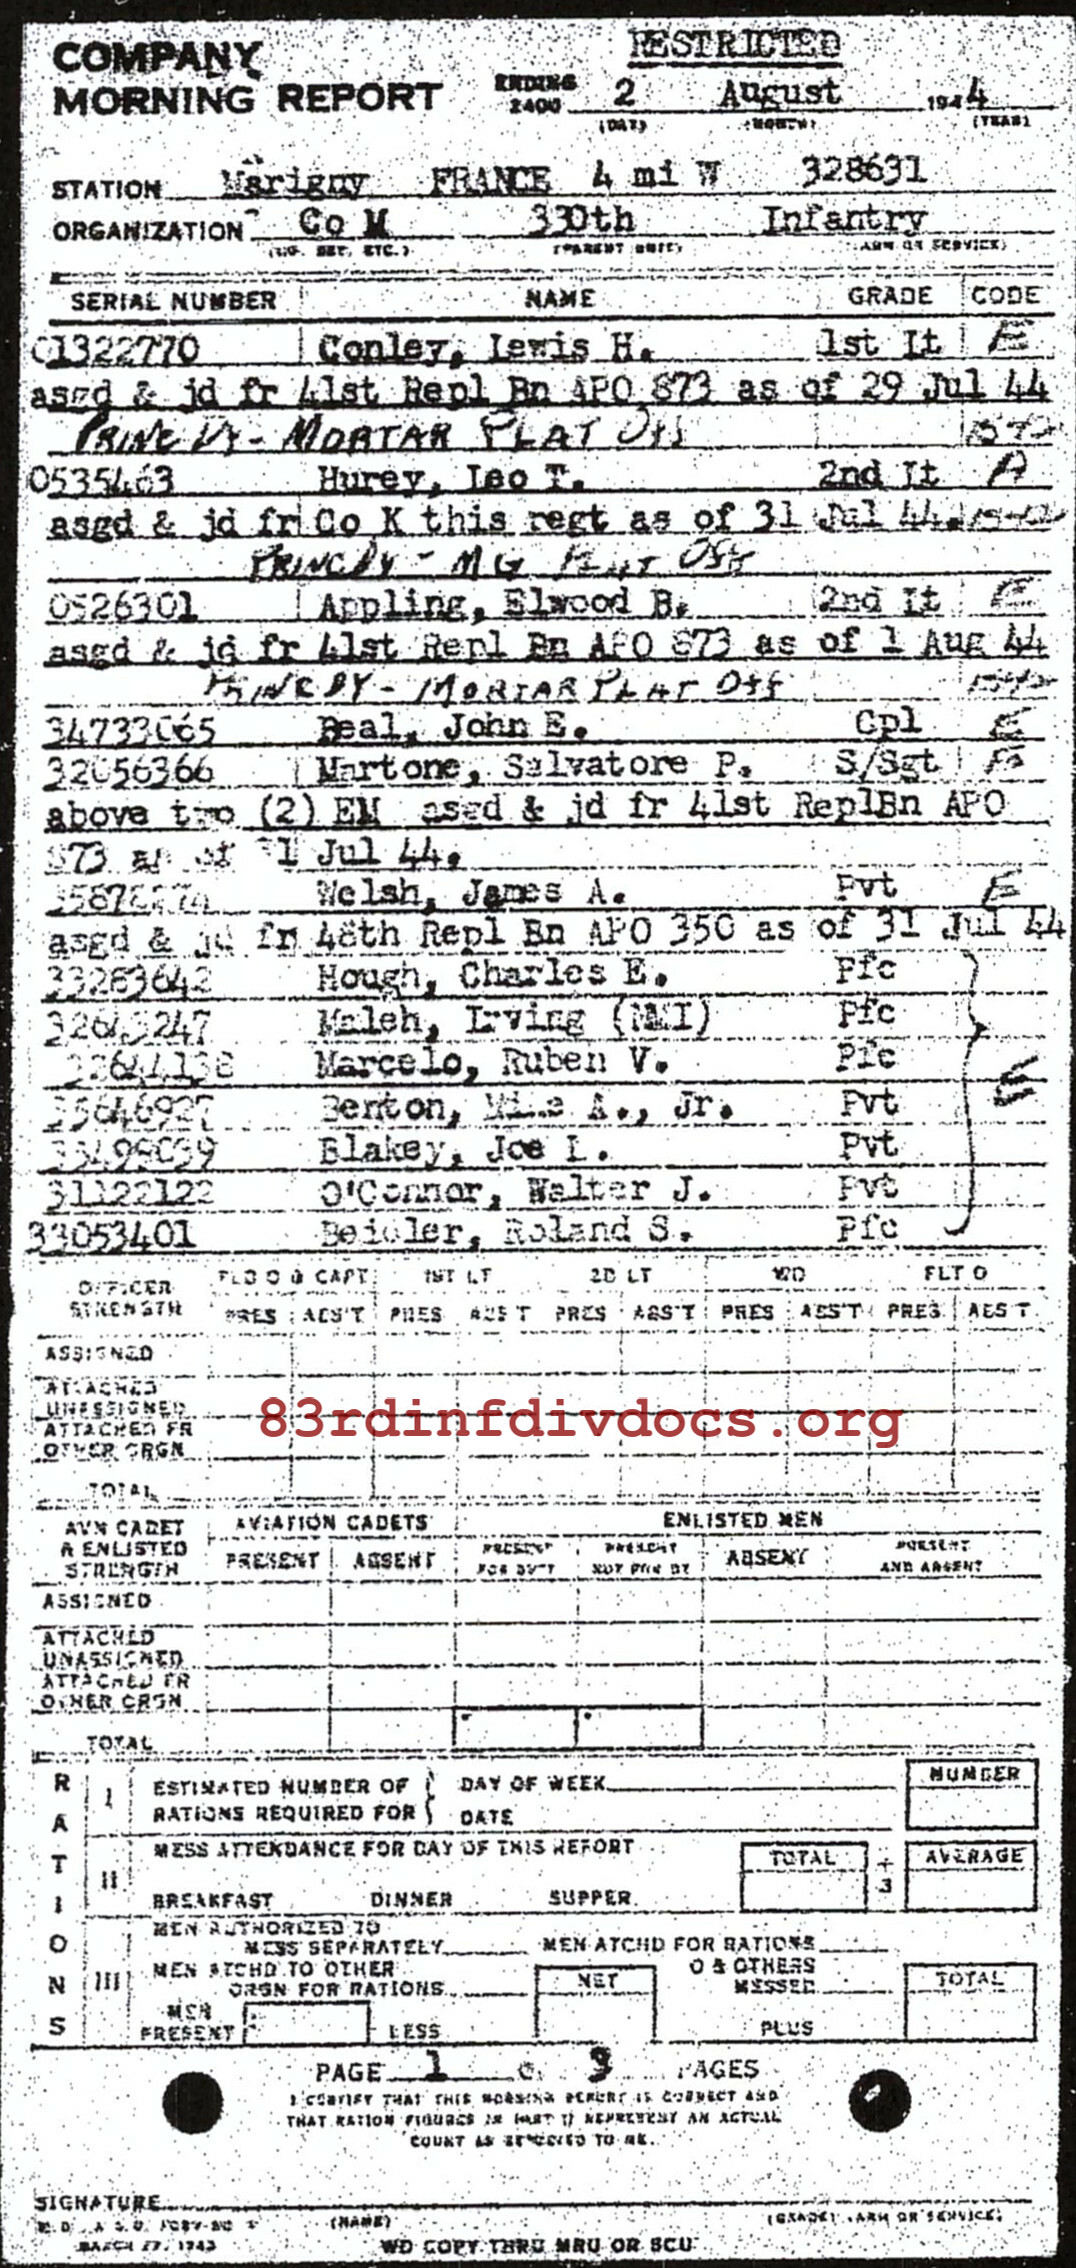 RESTRICTED
COMPANY
MORNING REPORT ENDING 2400 2 August 1944
(DAY) (MONTH) (YEAR)
STATION Marigny FRANCE 4 mi W 328631
ORGANIZATION Co M 330th Infantry
(CO. DET. ETC.) (PARENT UNIT) (ARM OR SERVICE)
SERIAL NUMBER NAME GRADE CODE
O1322770 Conley, Lewis H. 1st Lt E
asgd & jd fr 41st Repl Bn APO 873 as of 29 Jul 44
PRINC DY - MORTAR PLAT Off 1542
0535463 Hurey, Leo T. 2nd Lt A
asgd & jd fr Co K this regt as of 31 Jul 44. 1542
PRINC DY - MG PLAT Off
0526301 Appling, Elwood B. 2nd Lt E
asgd & jd fr 41st Repl Bn APO 873 as of 1 Aug 44
PRINC DY - MORTAR PLAT Off 1542
34733065 Beal, John E. Cpl E
32056366 Martone, Salvatore P. S/Sgt E
above two (2) EM asgd & jd fr 41st ReplBn APO
873 as of Jul 44.
Welsh, James A. Pvt E
asgd & jd fr 48th Repl Bn APO 350 as of 31 Jul 44
33283642 Hough, Charles E. Pfc
Maleh, Irving (NMI) Pfc
32644138 Marcelo, Ruben V. Pfc E
35646927 Benton, A., Jr. Pvt
Blakey, Joe L. Pvt
31122122 O'Connor, Walter J. Pvt
33053401 Beidler, Roland S. Pfc
OFFICER STRENGTH FLD O & CAPT 1ST LT 2D LT WO FLT O
PRES ABS'T PRES ABS'T PRES ABS'T PRES ABS'T PRES ABS'T
ASSIGNED
ATTACHED
UNASSIGNED
ATTACHED FR
OTHER ORGN
TOTAL
83rdinfdivdocs.org
AVN CADET
& ENLISTED
STRENGTH
AVIATION CADETS ENLISTED MEN
PRESENT ABSENT PRESENT FOR DUTY PRESENT NOT FOR DY ABSENT PRESENT AND ABSENT
ASSIGNED
ATTACHED
UNASSIGNED
ATTACHED FR
OTHER ORGN
TOTAL
RATIONS
I ESTIMATED NUMBER OF RATIONS REQUIRED FOR DAY OF WEEK NUMBER
DATE
II MESS ATTENDANCE FOR DAY OF THIS REPORT TOTAL ÷ 3 AVERAGE
BREAKFAST DINNER SUPPER
III MEN AUTHORIZED TO
MESS SEPARATELY MEN ATCHD FOR RATIONS
MEN ATCHD TO OTHER
ORGN FOR RATIONS NET O & OTHERS MESSED TOTAL
MEN PRESENT LESS PLUS
PAGE 1 OF 3 PAGES
I CERTIFY THAT THIS MORNING REPORT IS CORRECT AND
THAT RATION FIGURES IN PART II REPRESENT AN ACTUAL
COUNT AS REPORTED TO ME.
SIGNATURE
(NAME) (GRADE) (ARM OR SERVICE)
W. D., A. G. O. FORM NO. 1
MARCH 27, 1943
WD COPY THRU MRU OR SCU